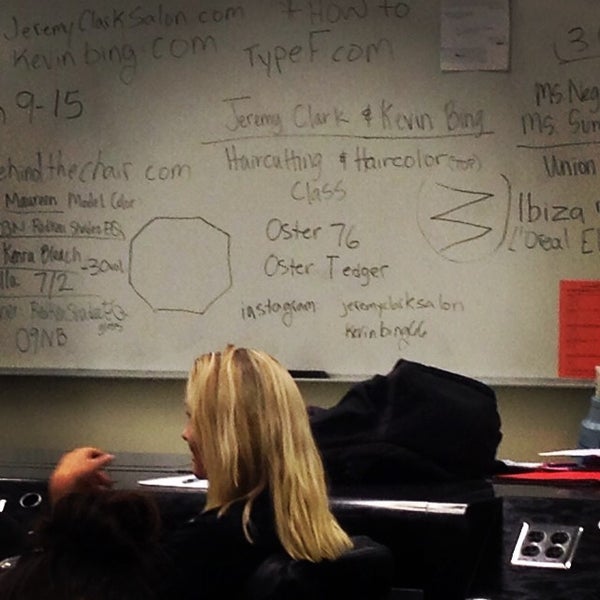 JeremyClarkSalon.com
Kevinbing.com
+ HOW to
TypeF.com
9-15
Jeremy Clark & Kevin Bing
Haircutting & Haircolor (TOP)
Class
Oster 76
Oster Tedger
instagram jeremyclarksalon
kevinbing66
ehindthechair.com
Maureen Model Color
Redken Shades EQ
Kenra Bleach
-30vol
7/2
Redken Shades EQ
gloss
09NB
3
Ms. Neg
Ms. Sum
Union
Ibiza
L'Oreal El